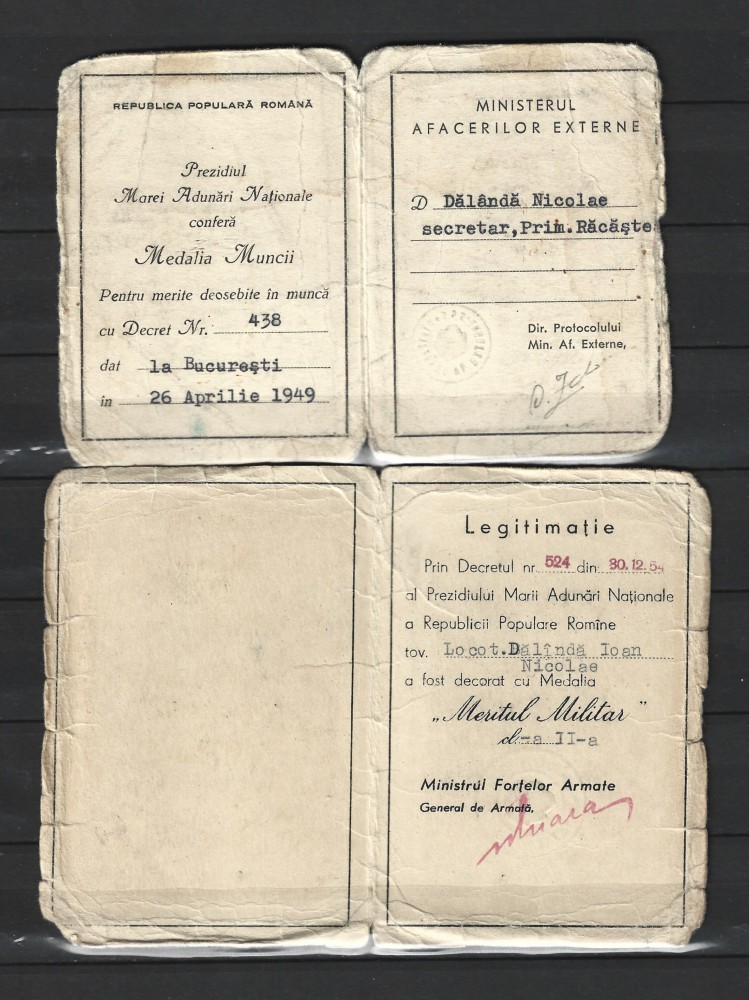 REPUBLICA POPULARĂ ROMÂNĂ
Prezidiul
Marei Adunări Naționale
conferă
Medalia Muncii
Pentru merite deosebite în muncă
cu Decret Nr. 438
dat la București
in 26 Aprilie 1949
MINISTERUL
AFACERILOR EXTERNE
D Dălândă Nicolae
secretar, Prim. Răcăște
Dir. Protocolului
Min. Af. Externe,
Legitimație
Prin Decretul nr. 524 din 30.12.54
al Prezidiului Marii Adunări Naționale
a Republicii Populare Romîne
tov. Locot. Dălîndă Ioan
Nicolae
a fost decorat cu Medalia
„Meritul Militar”
cl.-a II-a
Ministrul Forțelor Armate
General de Armată,